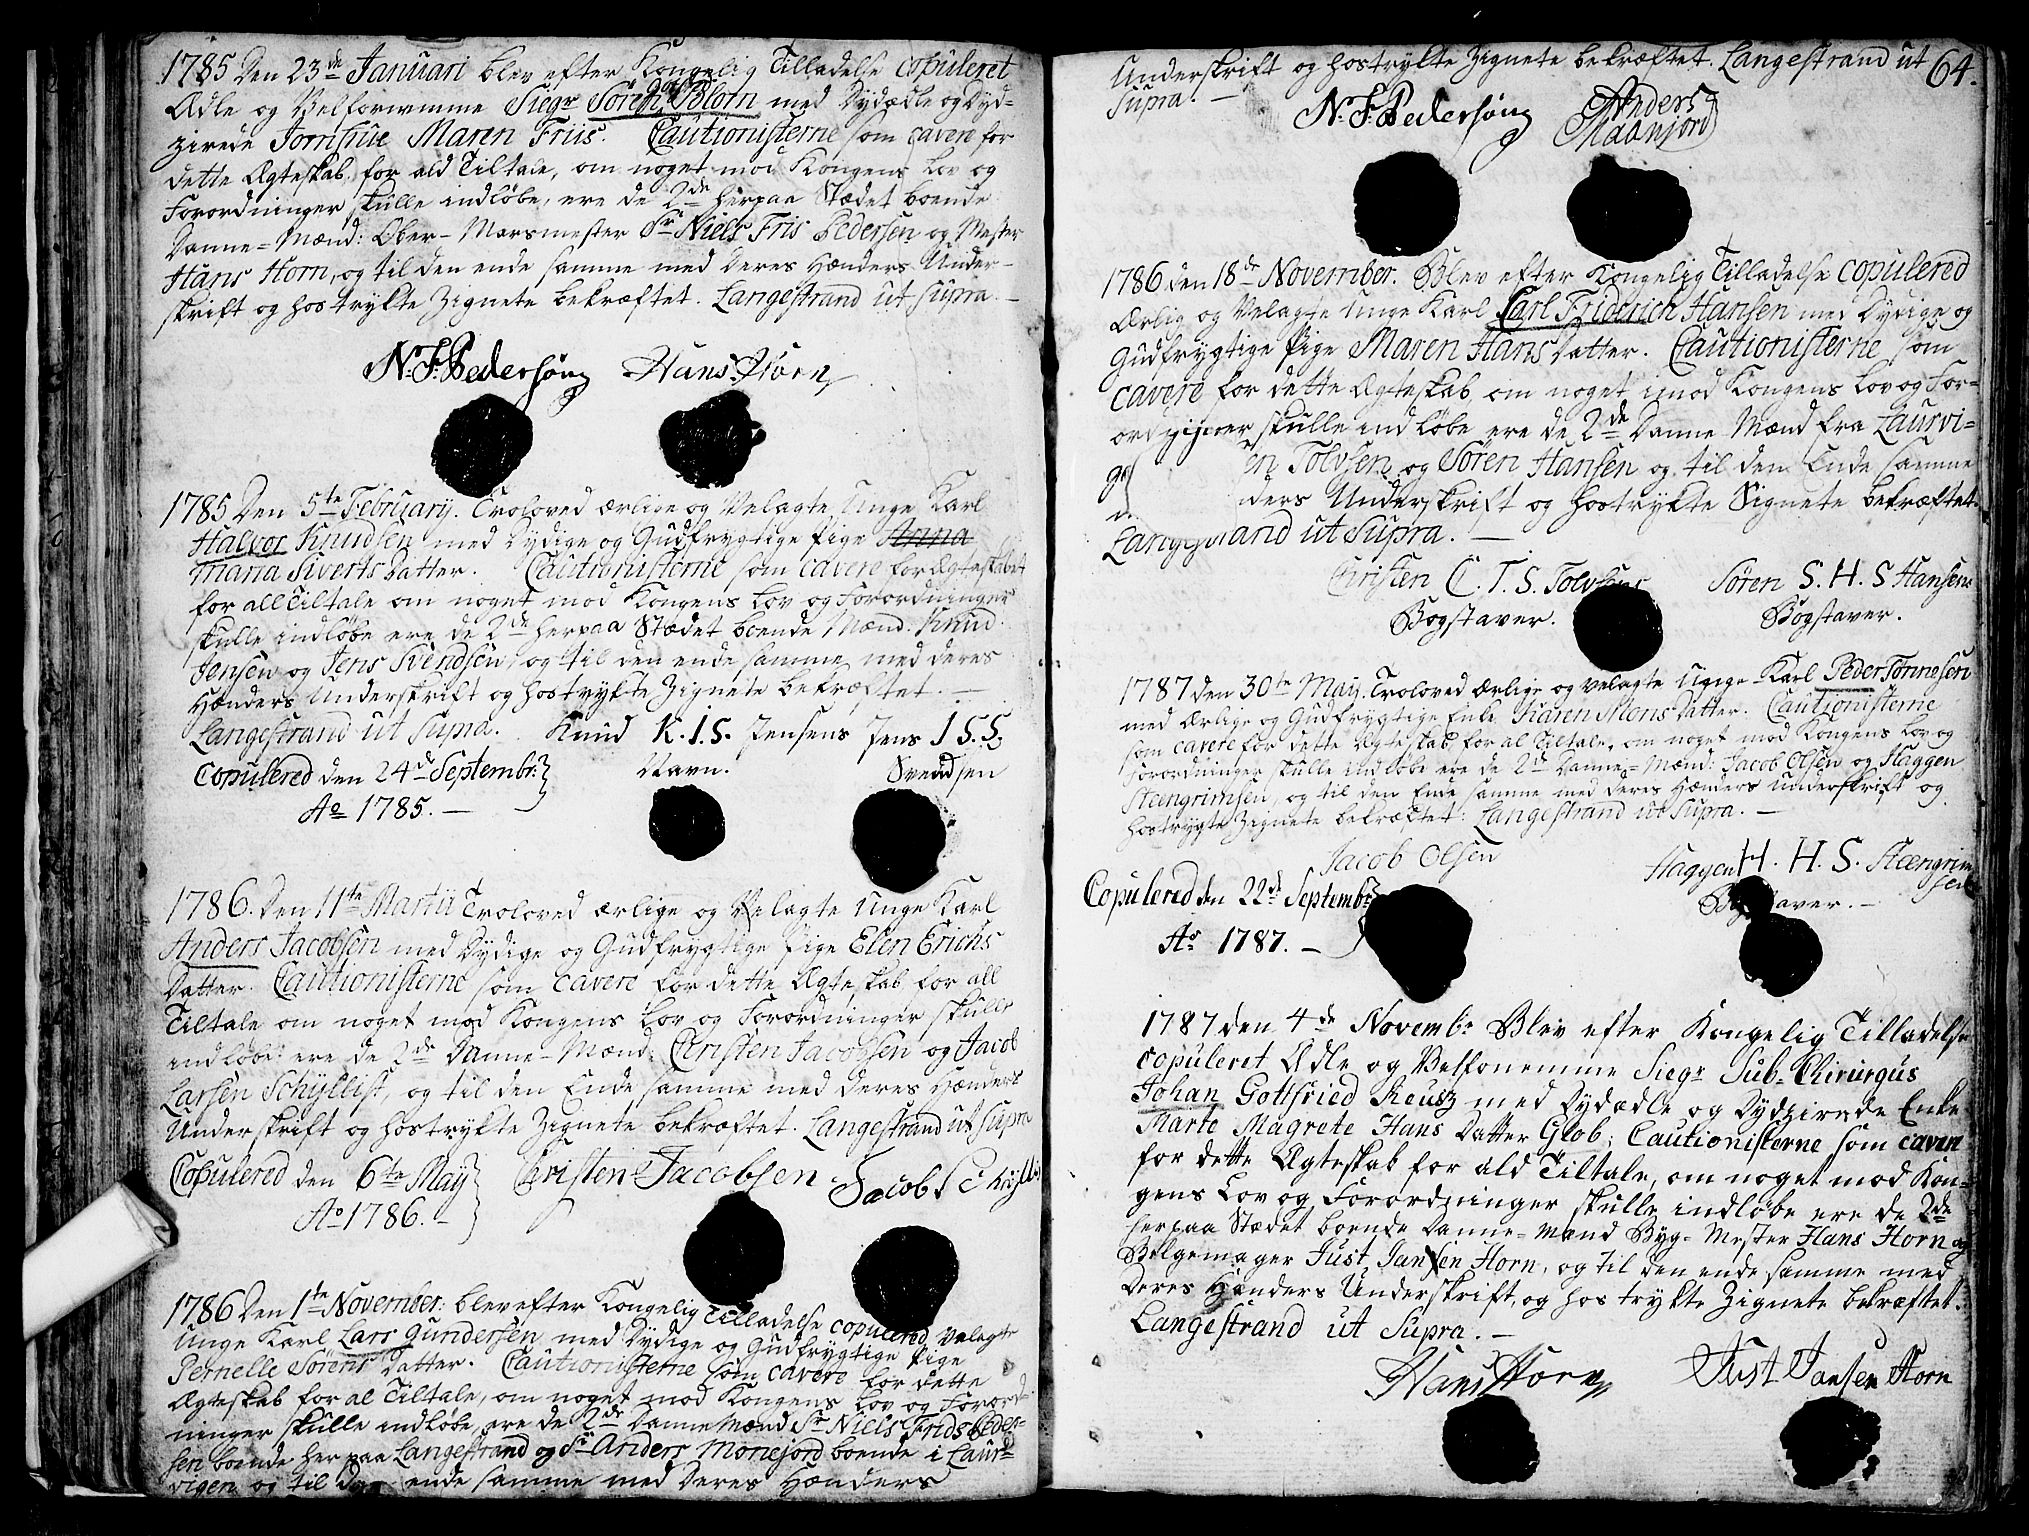 1785 Den 23de Januari blev efter Kongelig Tilladelse Copuleret
Ædle og Velfornemme Siegr Søren Blom med Dydædle og Dyd-
zirede Jomfrue Maren Friis. Cautionisterne som cavere for
dette Ægteskab for ald Tiltale, om noget mod Kongens Lov og
Forordninger skulle indløbe, ere de 2de herpaa Stædet boende
Danne-Mænd: Ober-Marsmester Sr Niels Fris Pedersen og Mester
Hans Horn, og til den ende samme med deres Hænders Under-
skrift og hostrykte Zignete bekræftet. Langestrand ut supra.
N. F. Pedersøn Hans Horn
1785 Den 5te February. Troloved ærlige og Velagte Unge Karl
Halvor Knudsen med Dydige og Gudfrygtige Pige Anna
Maria Siverts Datter. Cautionisterne som cavere for Ægteskabet
for all Tiltale om noget mod Kongens Lov og Forordninger
skulle indløbe ere de 2de herpaa Stædet boende Mænd. Knud
Jensen og Jens Svendsen, og til den ende samme med deres
Hænders Underskrift og hostrykte Zignete bekræftet.
Langestrand ut Supra. Knud K.I.S. Jensens Jens I S S.
Copulered den 24de Septembr: Navn. Svendsen
Ao 1785.
1786. Den 11te Martii Troloved ærlige og Velagte Unge Karl
Anders Jacobsen med Dydige og Gudfrygtige Pige Elen Erichs
Datter. Cautionisterne som cavere for dette Ægteskab for all
Tiltale om noget mod Kongens Lov og Forordninger skulle
indløbe: ere de 2de Danne-Mænd: Christen Jacobsen og Jacob
Larsen Schyllist, og til den Ende samme med deres Hænders
Underskrift og hostrykte Zignete bekræftet. Langestrand ut Supra
Copulered den 6te May Christen Jacobsen Jacob
Ao 1786.
1786 Den 1te November: blev efter Kongelig Tilladelse copulered Velagte
Unge Karl Lars Gundersen med Dydige og Gudfrygtige Pige
Pernelle Sørens Datter. Cautionisterne som cavere for dette
Ægteskab for al Tiltale, om noget mod Kongens Lov og Forord-
ninger skulle indløbe, ere de 2de Danne Mænd Sr Niels Friis Peder-
sen boende her paa Langestrand og Sr Anders Monejord boende i Laur-
vigen og til den ende samme med Deres Hænders
Underskrift og hostrykte Zignete bekræftet. Langestrand ut 64.
Supra.
N. F. Pedersøn Anders
Maanjord
1786 den 18de November. Blev efter Kongelig Tilladelse copulered
Ærlig og Velagte Unge Karl Carl Friderich Hansen med Dydige og
Gudfrygtige Pige Maren Hans Datter. Cautionisterne som
cavere for dette Ægteskab, om noget imod Kongens Lov og For-
ordninger skulle indløbe ere de 2de Danne Mænd fra Laurvi-
en Tolvsen og Søren Hansen og til den Ende samme
nders Underskrift og hostrykte Signete bekræftet.
Langestrand ut Supra.
Christen C. T. S. Tolvsens Søren S. H. S Hansens
Bogstaver. Bogstaver.
1787 den 30te May. Troloved ærlige og velagte Unge Karl Peder Tønnesen
med Ærlige og Gudfrygtige Enke Karen Mons Datter. Cautionisterne
som cavere for dette Ægteskab for al Tiltale, om noget mod Kongens Lov og
Forordninger skulle indløbe ere de 2de Danne-Mænd: Jacob Olsen og Haggen
Steengrimsen, og til den Ende samme med deres Hænders underskrift og
hostrygte Zignete bekræftet: Langestrand ut Supra.
Jacob Olsen Haggen H. H. S. Steengrim
sen
Copulered den 22de Septembr Bogstaver.
Ao 1787.
1787 den 4de Novembr Blev efter Kongelig Tilladelse
copuleret Ædle og Velfornemme Siegr Sub-Chirurgus
Johan Gottfried Reusz med Dydædle og Dydzirede Enke
Marte Magrete Hans Datter Glob; Cautionisterne som caven
for dette Ægteskab for ald Tiltale, om noget mod Kon-
gens Lov og Forordninger skulle indløbe ere de 2de
herpaa Stædet boende Danne-Mænd Byg-Mester Hans Horn og
Belgemager Just Jansen Horn, og til den ende samme med
Deres Hænders Underskrift, og hos trykte Zignete bekræftet.
Langestrand ut Supra.
Hans Horn Just Jansen Horn